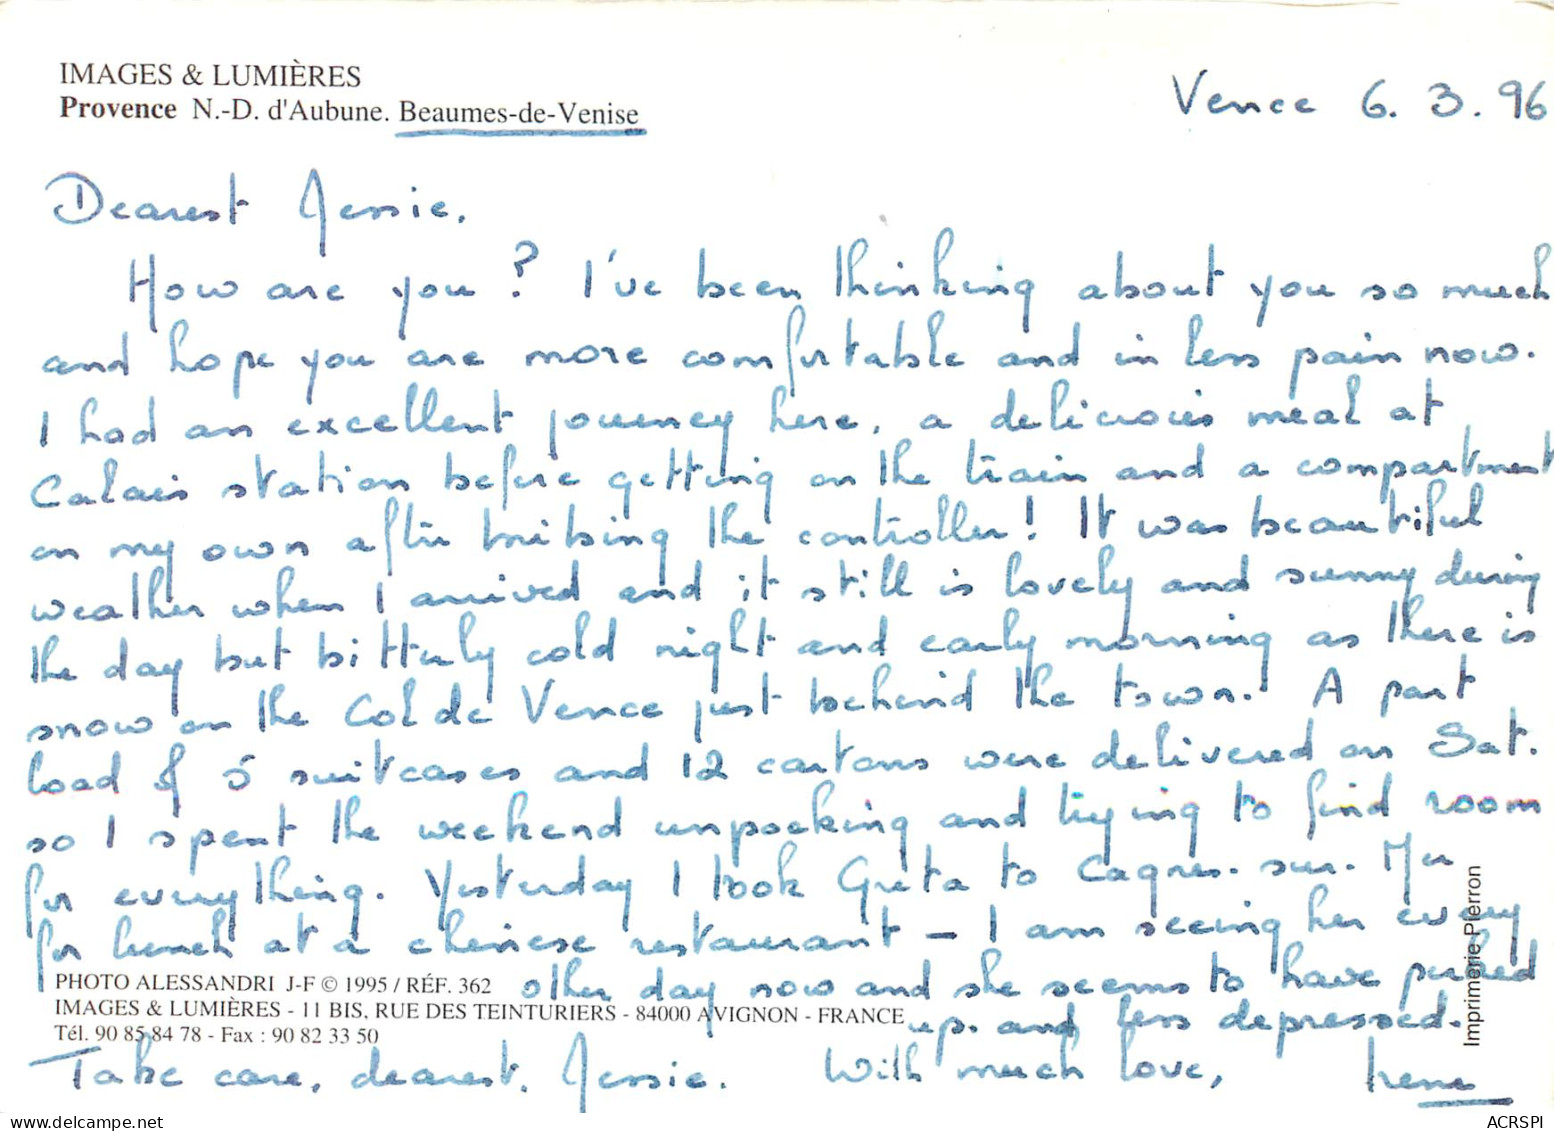 IMAGES & LUMIÈRES
Provence N.-D. d'Aubune. Beaumes-de-Venise
Vence 6. 3. 96
Dearest Jessie.
How are you? I've been thinking about you so much
and hope you are more comfortable and in less pain now.
I had an excellent journey here, a delicious meal at
Calais station before getting on the train and a compartment
on my own after bribing the controller! It was beautiful
weather when I arrived and it still is lovely and sunny during
the day but bitterly cold night and early morning as there is
snow on the Col de Vence just behind the town. A part
load of 5 suitcases and 12 cartons were delivered on Sat.
so I spent the weekend unpacking and trying to find room
for everything. Yesterday I took Greta to Cagnes-sur-Mer
for lunch at a chinese restaurant – I am seeing her every
other day now and she seems to have perked
up. and less depressed.
Take care, dearest. Jessie. With much love,
Irene
PHOTO ALESSANDRI J-F © 1995 / RÉF. 362
IMAGES & LUMIÈRES - 11 BIS, RUE DES TEINTURIERS - 84000 AVIGNON - FRANCE
Tél. 90 85 84 78 - Fax : 90 82 33 50
Imprimerie Pierron
ACRSPI